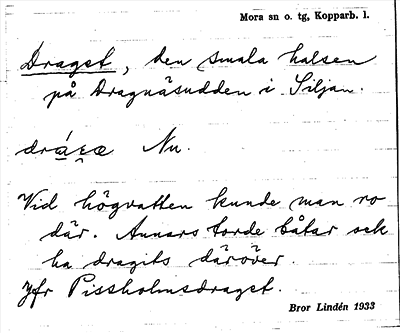 Mora sn o. tg, Kopparb. l.
Draget, den smala halsen
på Dragnäsudden i Siljan.
Nu.
Vid högvatten kunde man ro
där. Annars torde båtar och
ha dragits däröver.
Jfr Pissholmsdraget.
Bror Lindén 1933